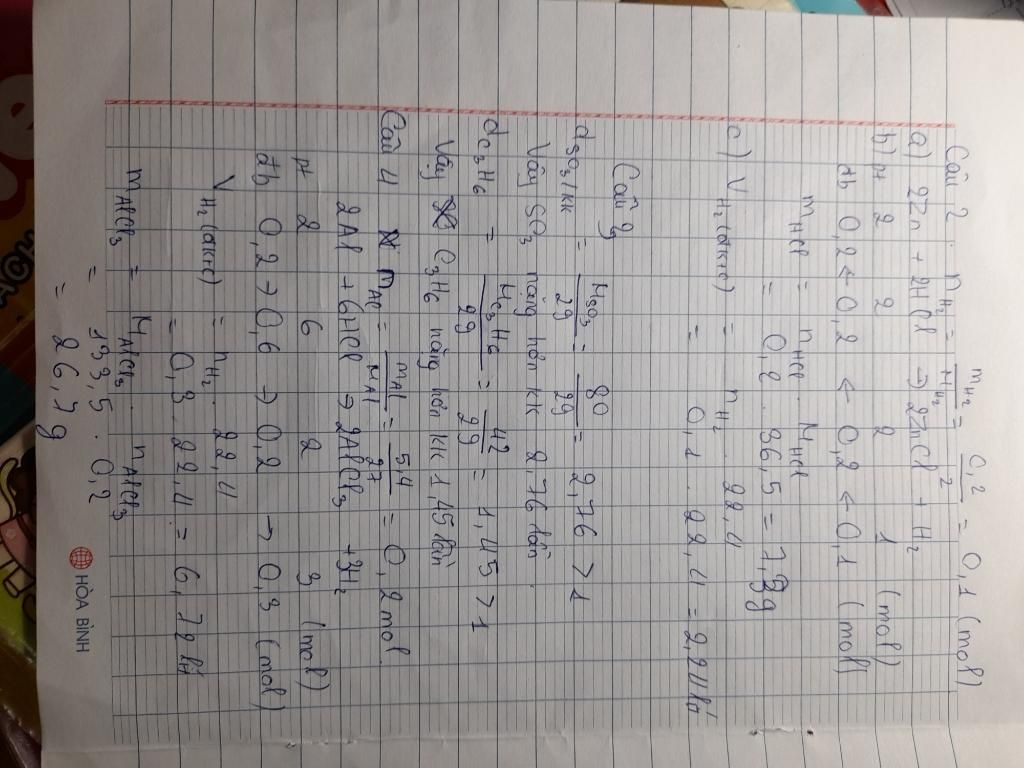 Câu 2. nH2 = mH2/MH2 = 0,2/2 = 0,1 (mol)
a) 2Zn + 2HCl → 2ZnCl + H2
b) pt 2 2 2 1 (mol)
đb 0,2 ← 0,2 ← 0,2 ← 0,1 (mol)
mHCl = nHCl . MHCl
= 0,2 . 36,5 = 7,3g
c) VH2(đktc) = nH2 . 22,4
= 0,1 . 22,4 = 2,24 lít
Câu 3
dSO3/kk = MSO3/29 = 80/29 = 2,76 > 1
Vậy SO3 nặng hơn kk 2,76 lần.
dC3H6 = MC3H6/29 = 42/29 = 1,45 > 1
Vậy C3H6 nặng hơn kk 1,45 lần
Câu 4 nAl = mAl/MAl = 5,4/27 = 0,2 mol
2Al + 6HCl → 2AlCl3 + 3H2
pt 2 6 2 3 (mol)
đb 0,2 → 0,6 → 0,2 → 0,3 (mol)
VH2(đktc) = nH2 . 22,4
= 0,3 . 22,4 = 6,72 lít
mAlCl3 = MAlCl3 . nAlCl3
= 133,5 . 0,2
= 26,7 g
HÒA BÌNH